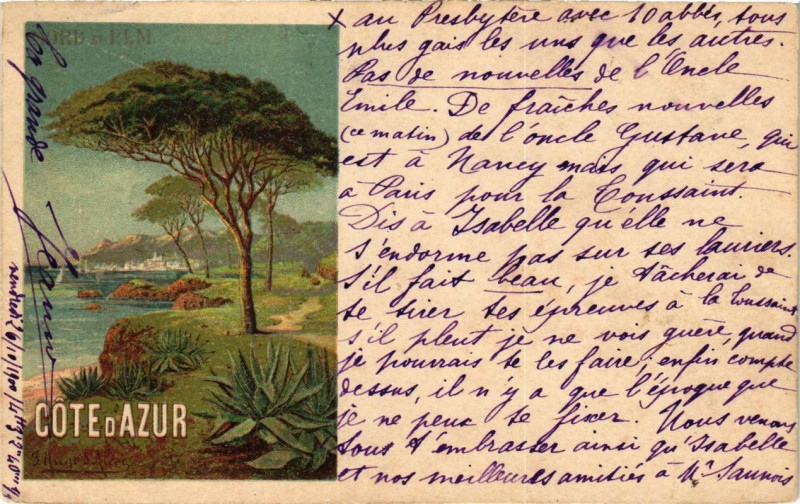 x au Presbytère avec 10 abbés, tous
plus gais les uns que les autres.
Pas de nouvelles de l'Oncle
Emile. De fraîches nouvelles
(ce matin) de l'oncle Gustave, qui
est à Nancy mais qui sera
à Paris pour la Toussaint.
Dis à Isabelle qu'elle ne
s'endorme pas sur ses lauriers.
S'il fait beau, je tâcherai de
te tirer tes épreuves à la Toussaint
s'il pleut je ne vois guère, quand
je pourrais te les faire; enfin compte
dessus, il n'y a que l'époque que
je ne peux te fixer. Nous venons
tous t'embrasser ainsi qu'Isabelle
et nos meilleures amitiés à Mr Saunois
NORD ET P.L.M
CÔTE D'AZUR
F. Hugo d'Alési
vendredi 26/10/1900